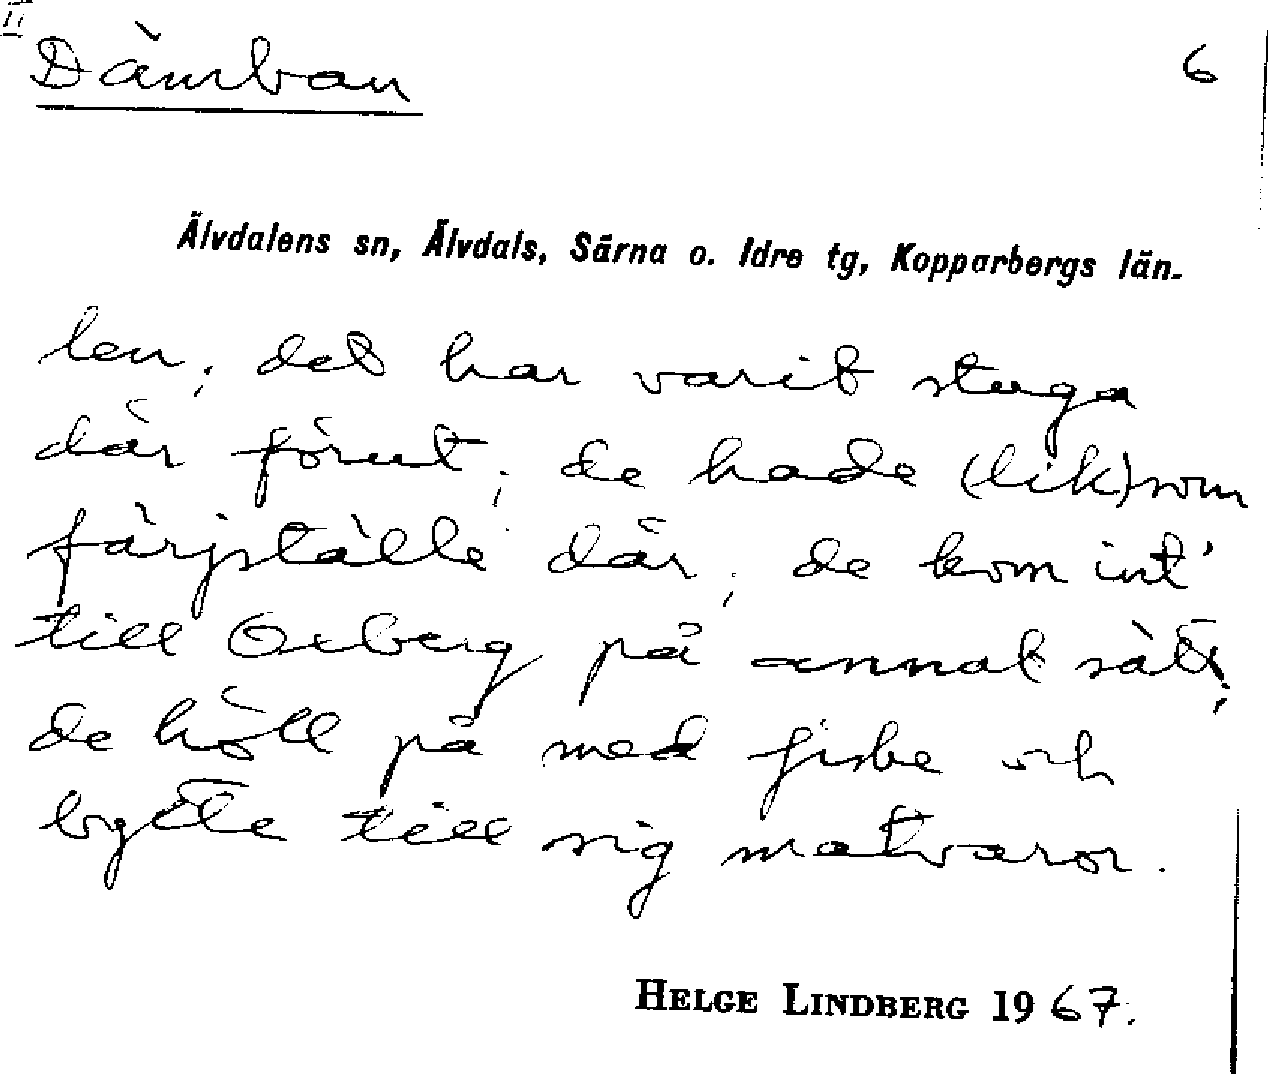 II
Dämban 6
Älvdalens sn, Älvdals, Särna o. Idre tg, Kopparbergs län.
len; det har varit stuga
där förut; de hade (lik)som
färjställe där; de kom int'
till Oxberg på annat sätt;
de höll på med fiske och
bytte till sig matvaror.
HELGE LINDBERG 1967.